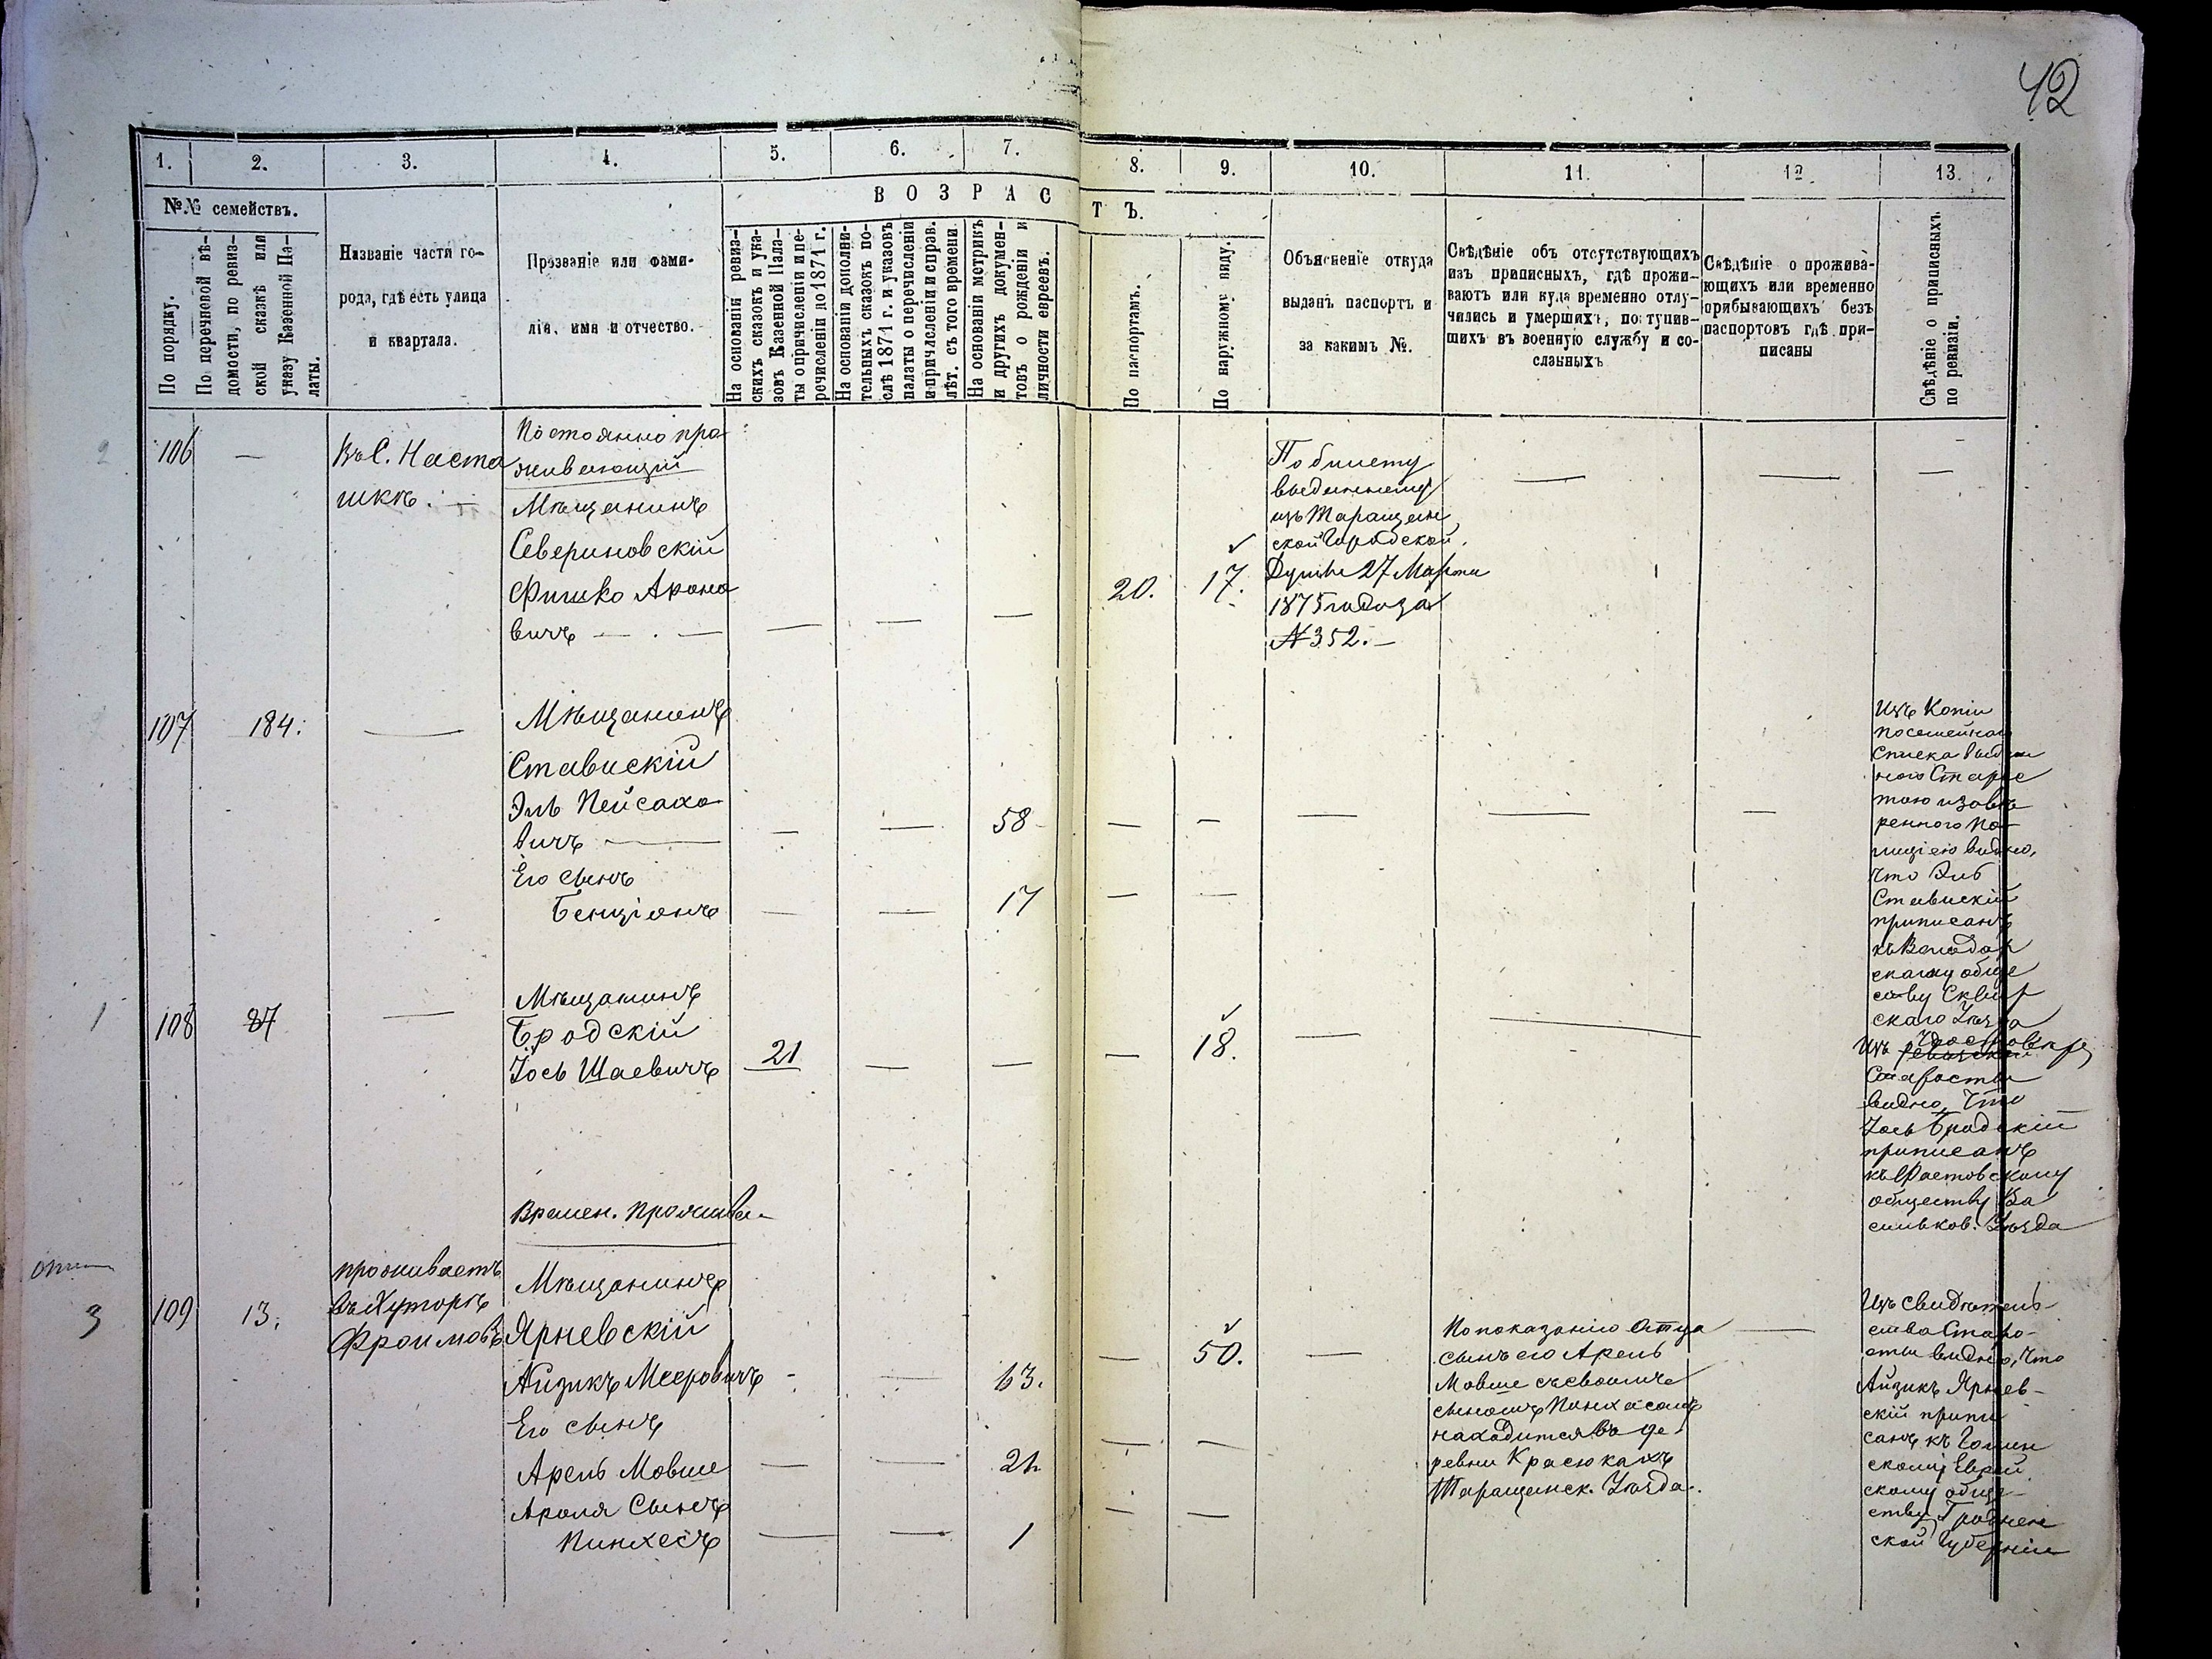 42
1.
2.
3.
4.
5.
6.
7.
8.
9.
10.
11.
12
13.
№№ семействъ.
По порядку.
По перечневой вѣ-
домости, по ревиз-
ской сказкѣ или
указу Казенной Па-
латы.
Названіе части го-
рода, гдѣ есть улица
и квартала.
Прозваніе или фами-
лія, имя и отчество.
ВОЗРАС
ТЪ.
На основаніи ревиз-
скихъ сказокъ и ука-
зовъ Казенной Пала-
ты о причисленіи и пе-
речисленіи до 1871 г.
На основаніи дополни-
тельныхъ сказокъ по-
слѣ 1871 г. и указовъ
палаты о перечисленіи
и причисленіи и справ.
лѣт. съ того времени.
На основаніи метрикъ
и другихъ докумен-
товъ о рожденіи и
личности евреевъ.
По паспортамъ.
По наружному виду.
Объясненіе откуда
выданъ паспортъ и
за какимъ №.
Свѣдѣніе объ отсутствующихъ
изъ приписныхъ, гдѣ прожи-
ваютъ или куда временно отлу-
чились и умершихъ, поступив-
шихъ въ военную службу и со-
сланныхъ
Свѣдѣніе о прожива-
ющихъ или временно
прибывающихъ безъ
паспортовъ гдѣ при-
писаны
Свѣдѣніе о приписныхъ
по ревизіи.
2
106
—
Въ С. Наста
шкѣ. —
Постоянно про
живающій
Мѣщанинъ
Севериновскій
ФишкоАроно
вичъ — . —
—
—
—
20.
17.
По билету
выданному
изъ Таращан
ской Городской
Думы 27 Марта
1875 года за
№ 352. —
—
—
—
107
184.
—
Мѣщанинъ
Ставискій
Эль Пейсахо
вичъ —
—
—
58
—
—
—
—
—
Его сынъ
Бенціонъ
—
—
17
—
—
Изъ Копіи
посемейнаго
Списка выдан
ного Старос
тою изавѣ
ренного По
лиціею видно,
что Эль
Ставискій
приписанъ
къ Володар
скому обще
ству Сквир
скаго Уѣзда
1
108
87
—
Мѣщанинъ
Бродскій
Іось Шаевичъ
21
—
—
—
18.
—
—
Изъ
Старосты
видно, что
Іось Бродскій
приписанъ
къ Фастовскому
обществу Ва
сильков. Уѣзда
Времен. Прожива.
3
109
13.
проживаетъ
въ Хуторѣ
Фроимовъ
Мѣщанинъ
Ярневскій
Айзикъ Мееровичъ
—
63.
—
50.
—
По показанію Отца
сынъ его Арель
Мовше съ своимъ
сыномъ Пинхасомъ
находится въ де
ревни Красюкахъ
Таращанск. Уѣзда.
—
Его сынъ
Арель Мовше
—
—
21
—
—
Ароля Сынъ
Пинхесъ
—
—
1
—
—
Изъ свидѣтель-
ства Старо-
сты видно, что
Айзикъ Ярнев-
скій припи
санъ къ
скому Еврей
скому обще-
ству Гроднен
ской Губерніи